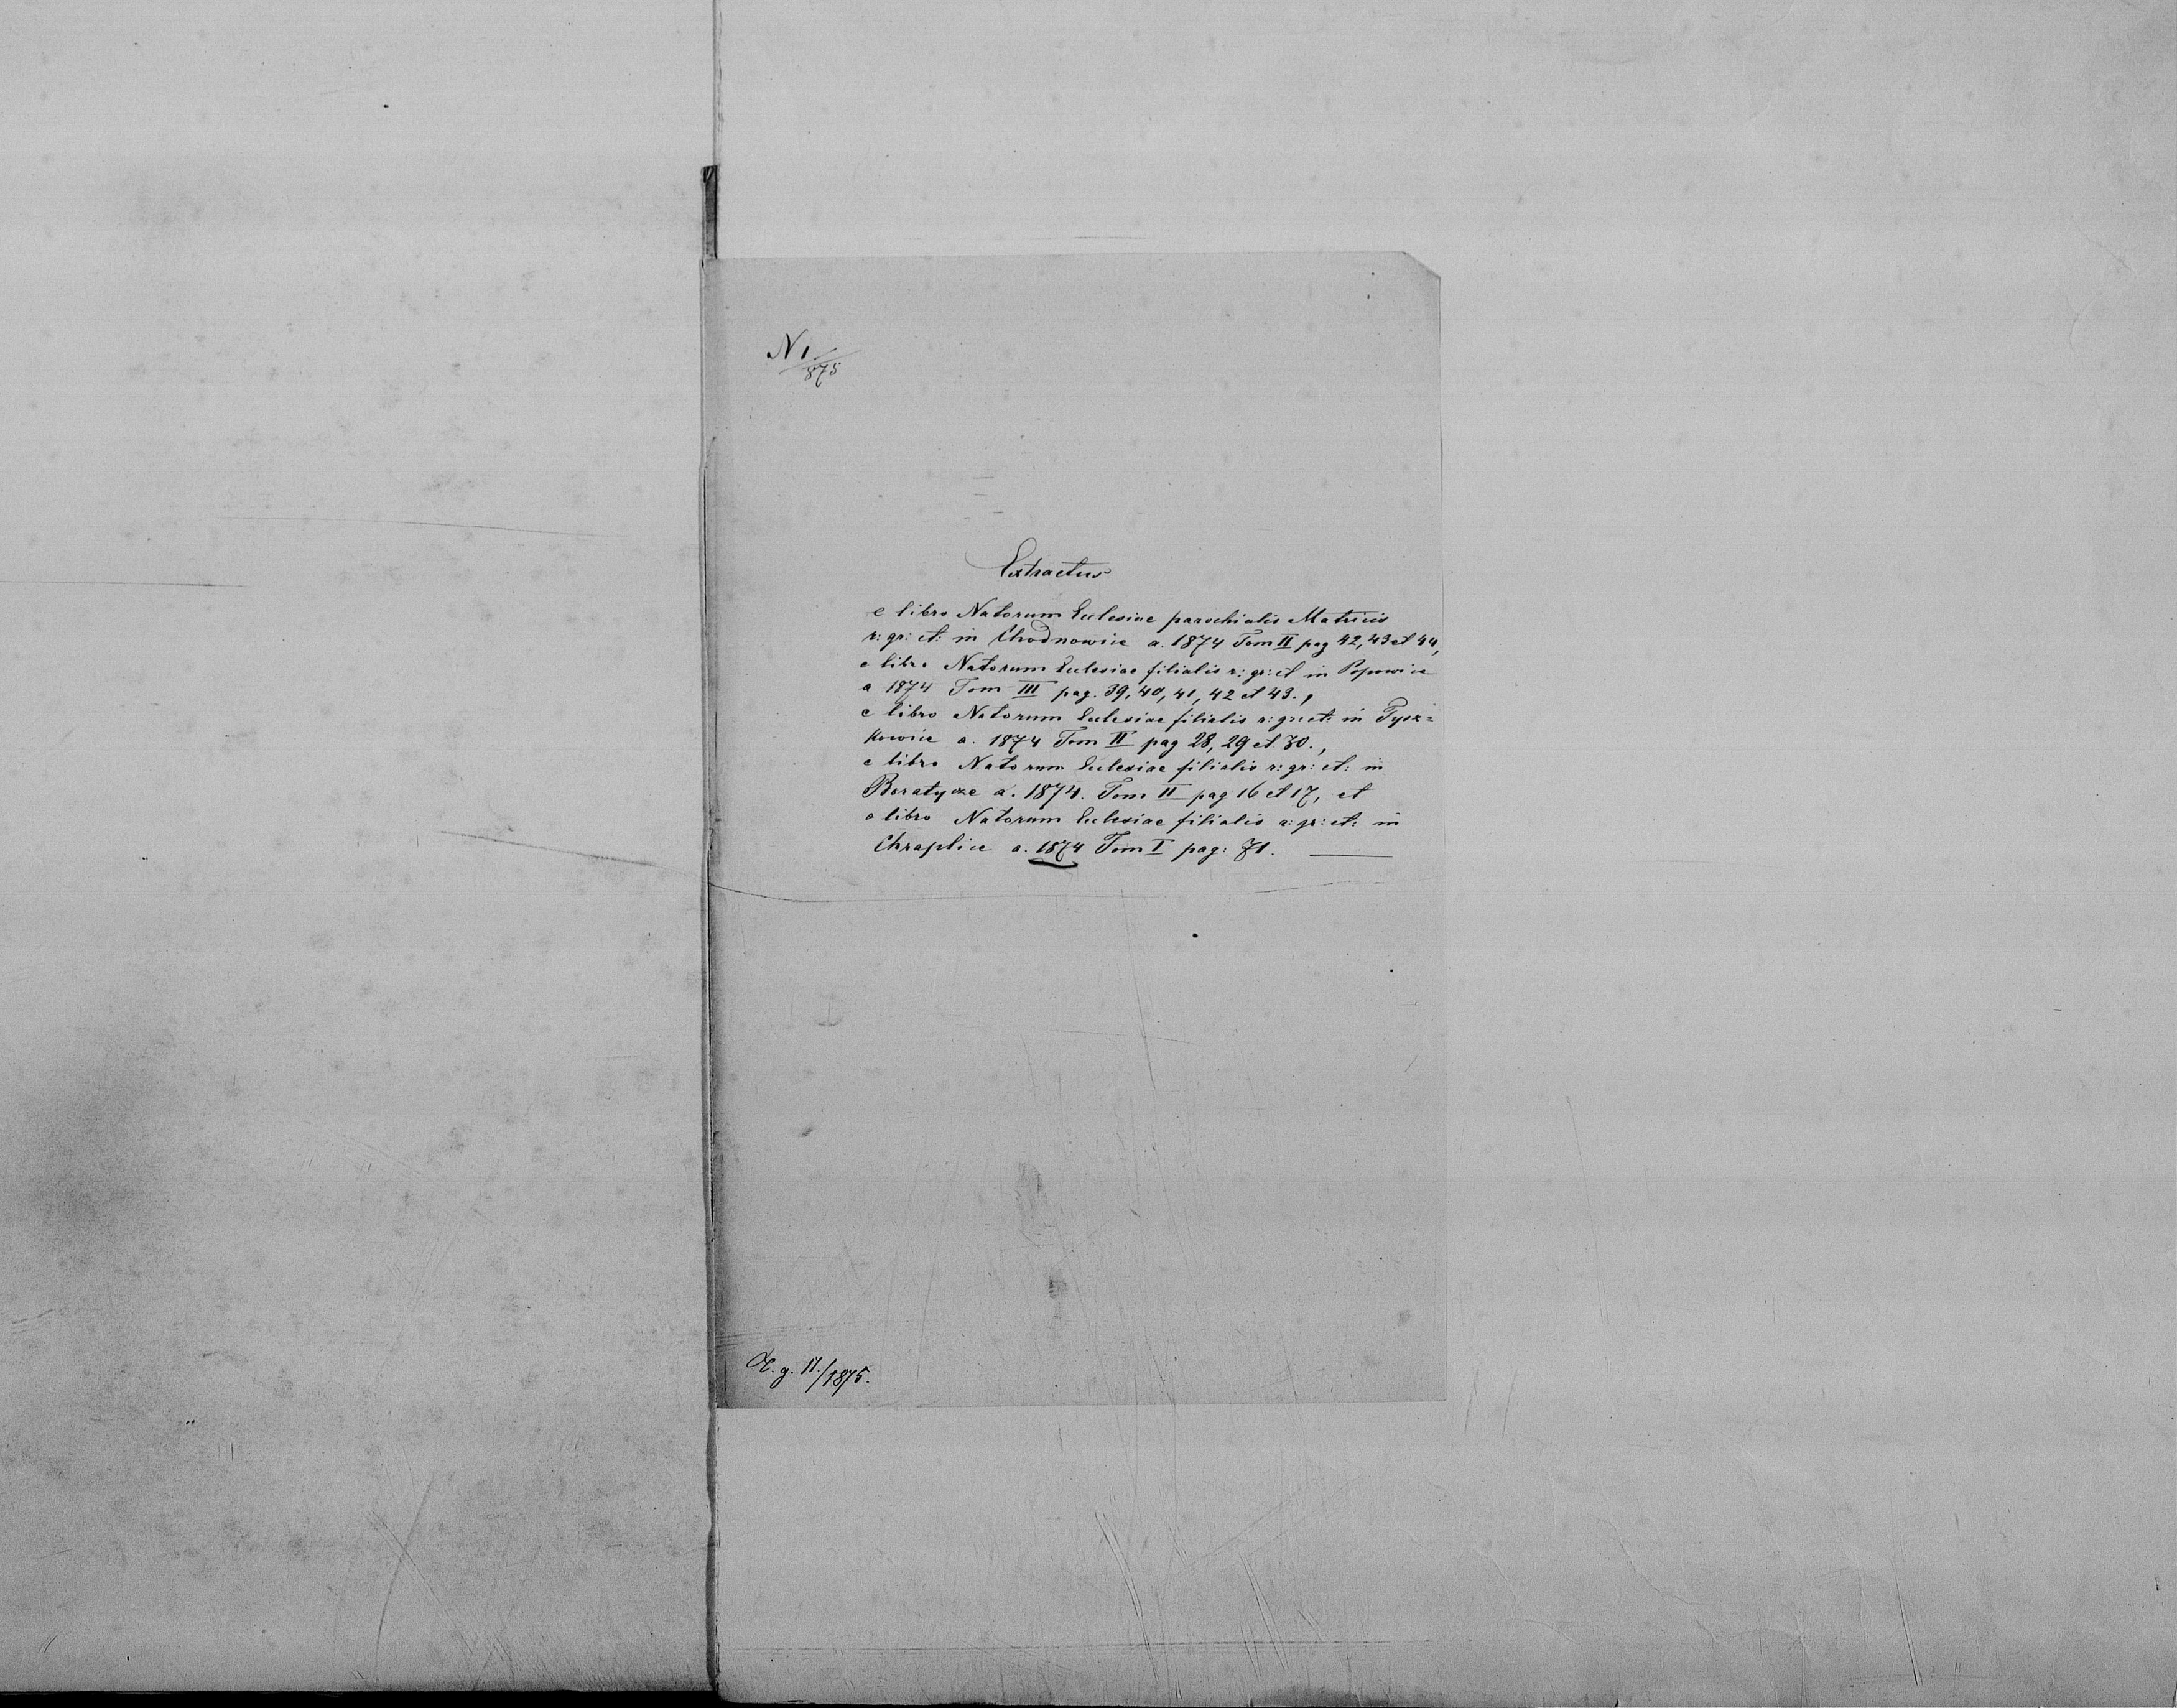 N 1/875
Extractus
e libro Natorum Ecclesiae parochialis Matricis
r: gr: ct: in Chodnowice a. 1874 Tom II pag 42, 43 et 44,
e libro Natorum Ecclesiae filialis r: gr: ct in Popowice
a 1874 Tom III pag. 39, 40, 41, 42 et 43.,
e libro Natorum Ecclesiae filialis r: gr: ct: in Tysz=
kowice a. 1874 Tom II pag 28, 29 et 30.,
e libro Natorum Ecclesiae filialis r: gr: ct: in
Boratycze a. 1874. Tom II pag 16 et 17, et
e libro Natorum Ecclesiae filialis r: gr: ct: in
Chraplice a. 1874 Tom I pag: 71.
g. 11./1875.